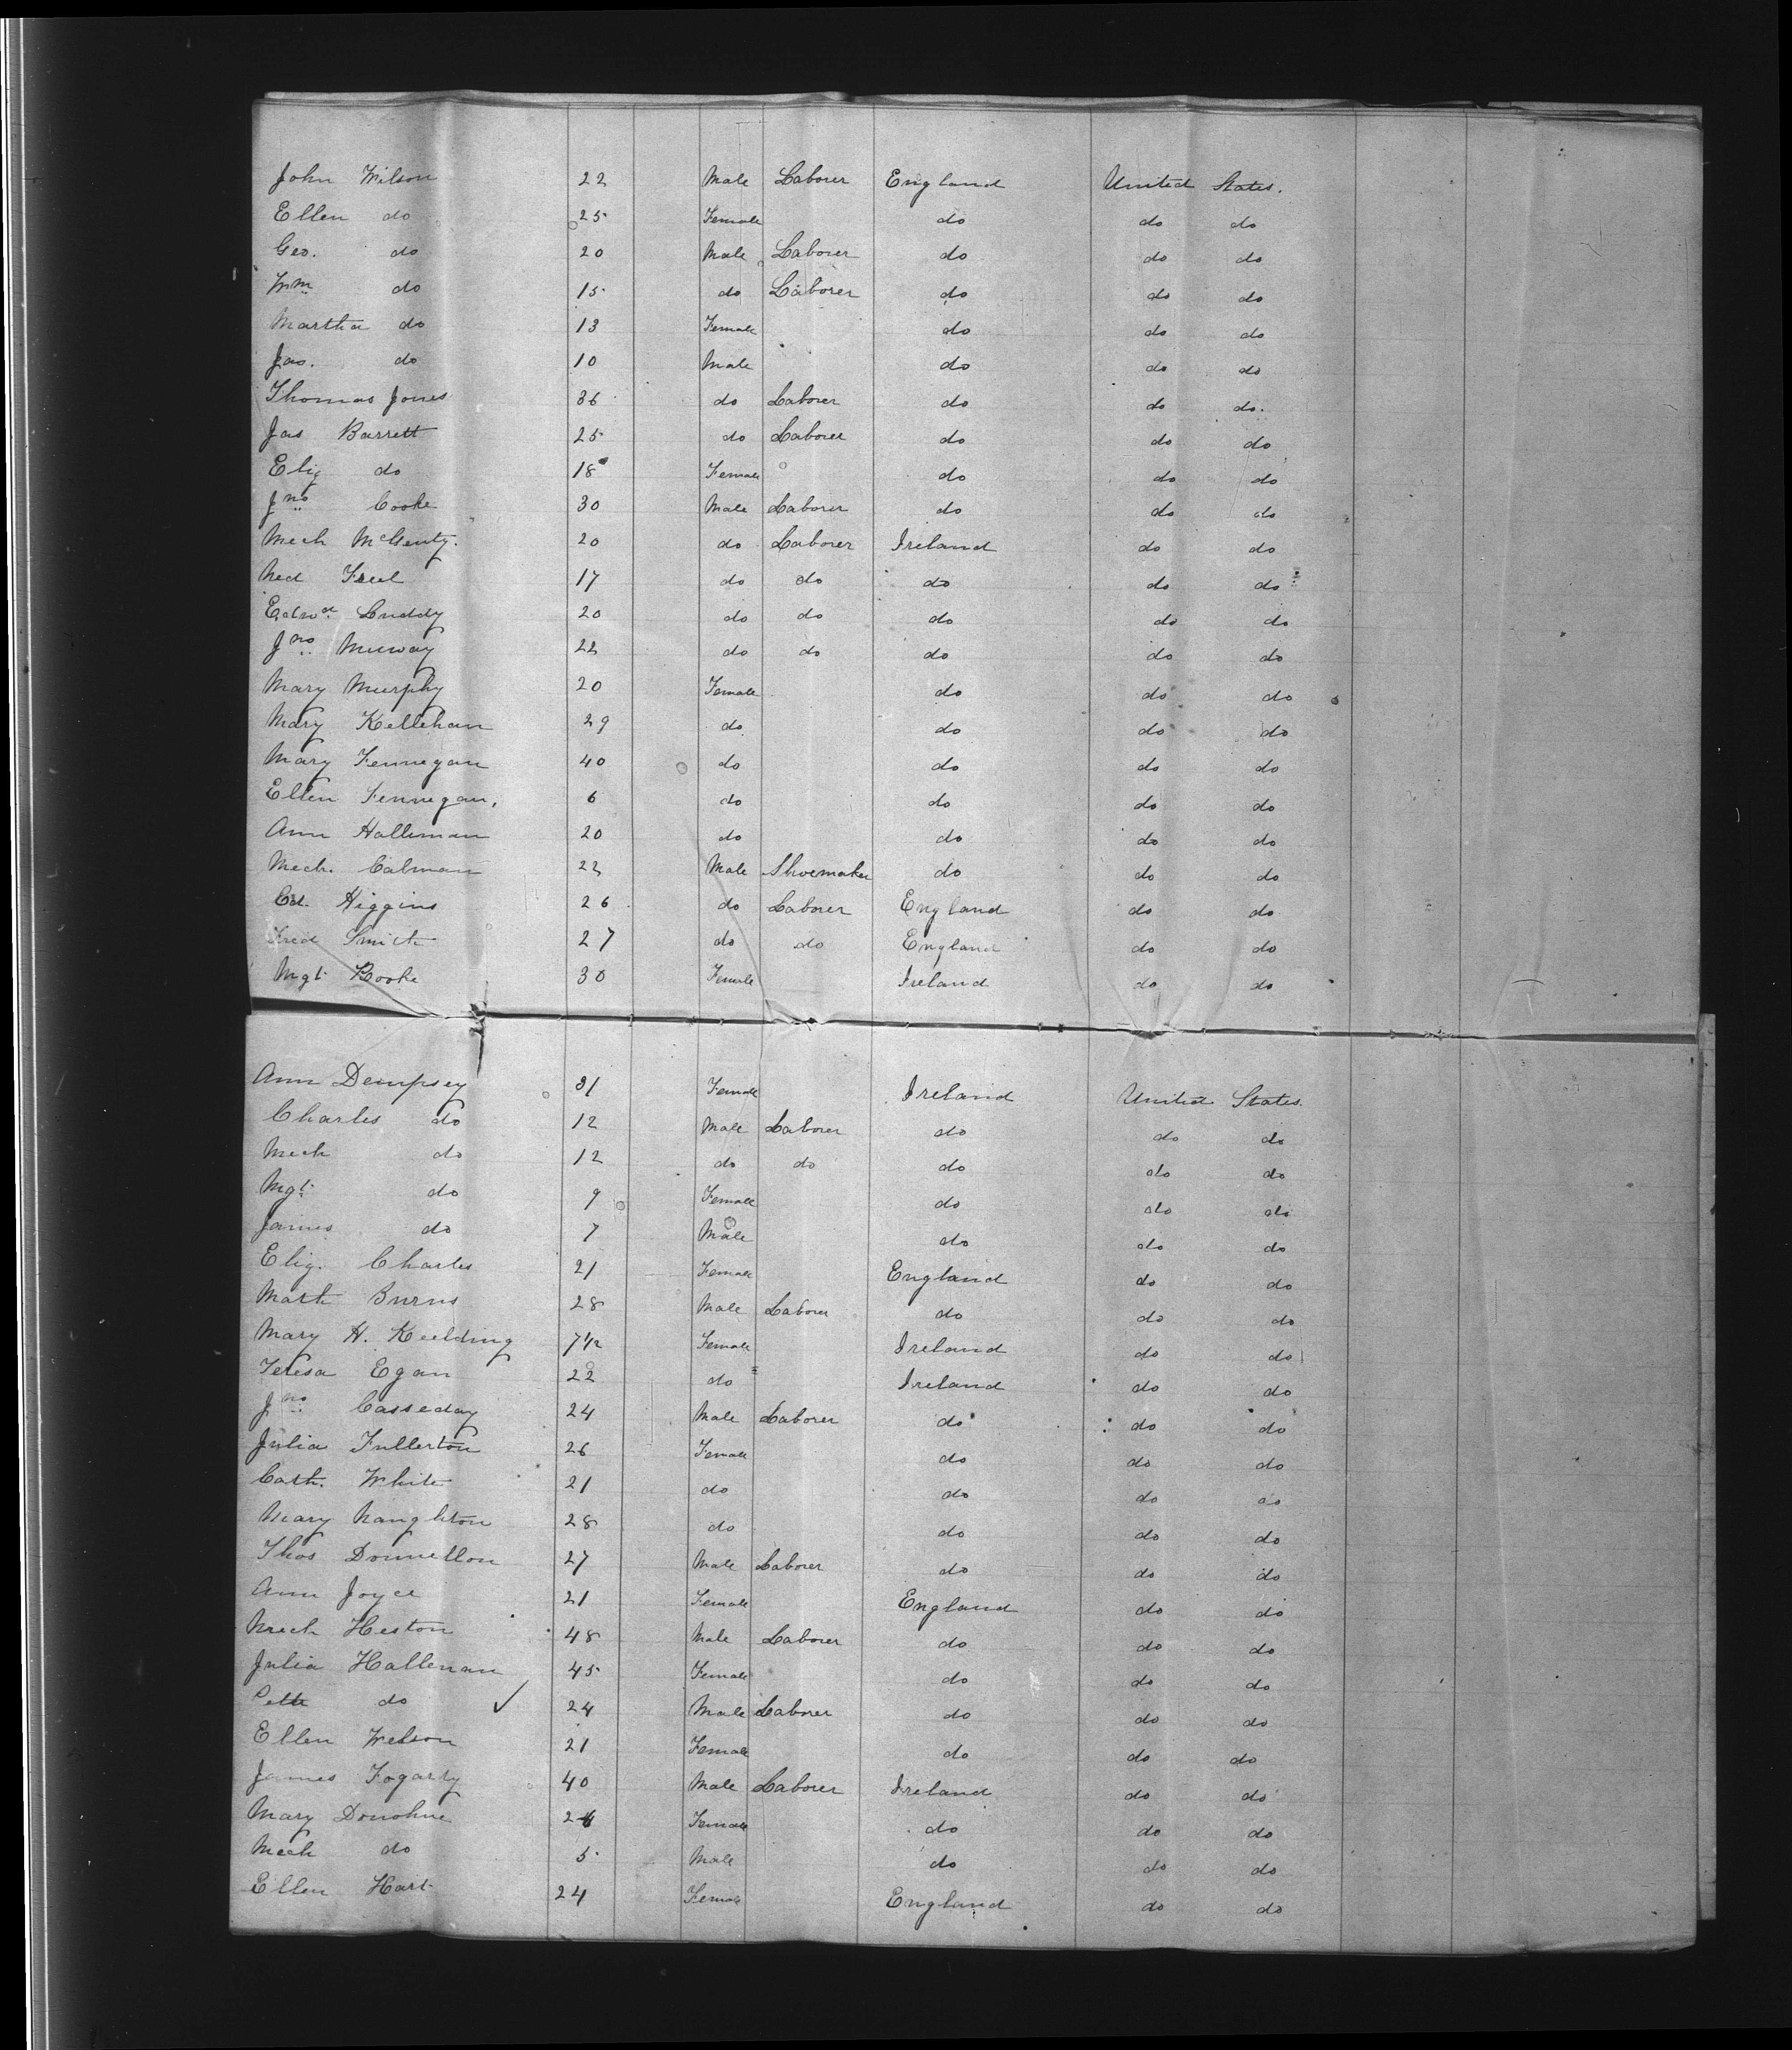 John Wilson 22 Male Laborer England United States.
Ellen do 25 Female do do do
Geo. do 20 Male Laborer do do do
Wm do 15 do Laborer do do do
Martha do 13 Female do do do
Jas. do 10 Male do do do
Thomas Jones 36 do Laborer do do do.
Jas Barrett 25 do Laborer do do do
Eliz do 18 Female do do do
Jno Cooke 30 Male Laborer do do do
Mich McGenty. 20 do Laborer Ireland do do
Ned Freel 17 do do do do do
Edwd Luddy 20 do do do do do
Jno 22 do do do do do
Mary Murphy 20 Female do do do
Mary Kellehan 29 do do do do
Mary Fennegan 40 do do do do
Ellen Fennegan, 6 do do do do
Ann Halliman 20 do do do do
Mich. Calman 22 Male Shoemaker do do do
Ed. Higgins 26 do Laborer England do do
Fred Smith 27 do do England do do
Mgt Rooke 30 Female Ireland do do
Ann Dempsey 31 Female Ireland United States.
Charles do 12 Male Laborer do do do
Mich do 12 do do do do do
Mgt do 9 Female do do do
James do 7 Male do do do
Eliz. Charles 21 Female England do do
Mark Burns 28 Male Laborer do do do
Mary H. Keelding 7 1/2 Female Ireland do do
Teresa Egan 22 do Ireland do do
Jno Casseday 24 Male Laborer do do do
Julia Fullerton 26 Female do do do
Cath. White 21 do do do do
Mary Naughton 28 do do do do
Thos Donnellon 27 Male Laborer do do do
Ann Joyce 21 Female England do do
Mich Heston 48 Male Laborer do do do
Julia Hallenan 45 Female do do do
do ✓ 24 Male Laborer do do do
Ellen Welson 21 Female do do do
James Fogarty 40 Male Laborer Ireland do do
Mary Donohue 24 Female do do do
Mich do 5 Male do do do
Ellen Hart 24 Female England do do